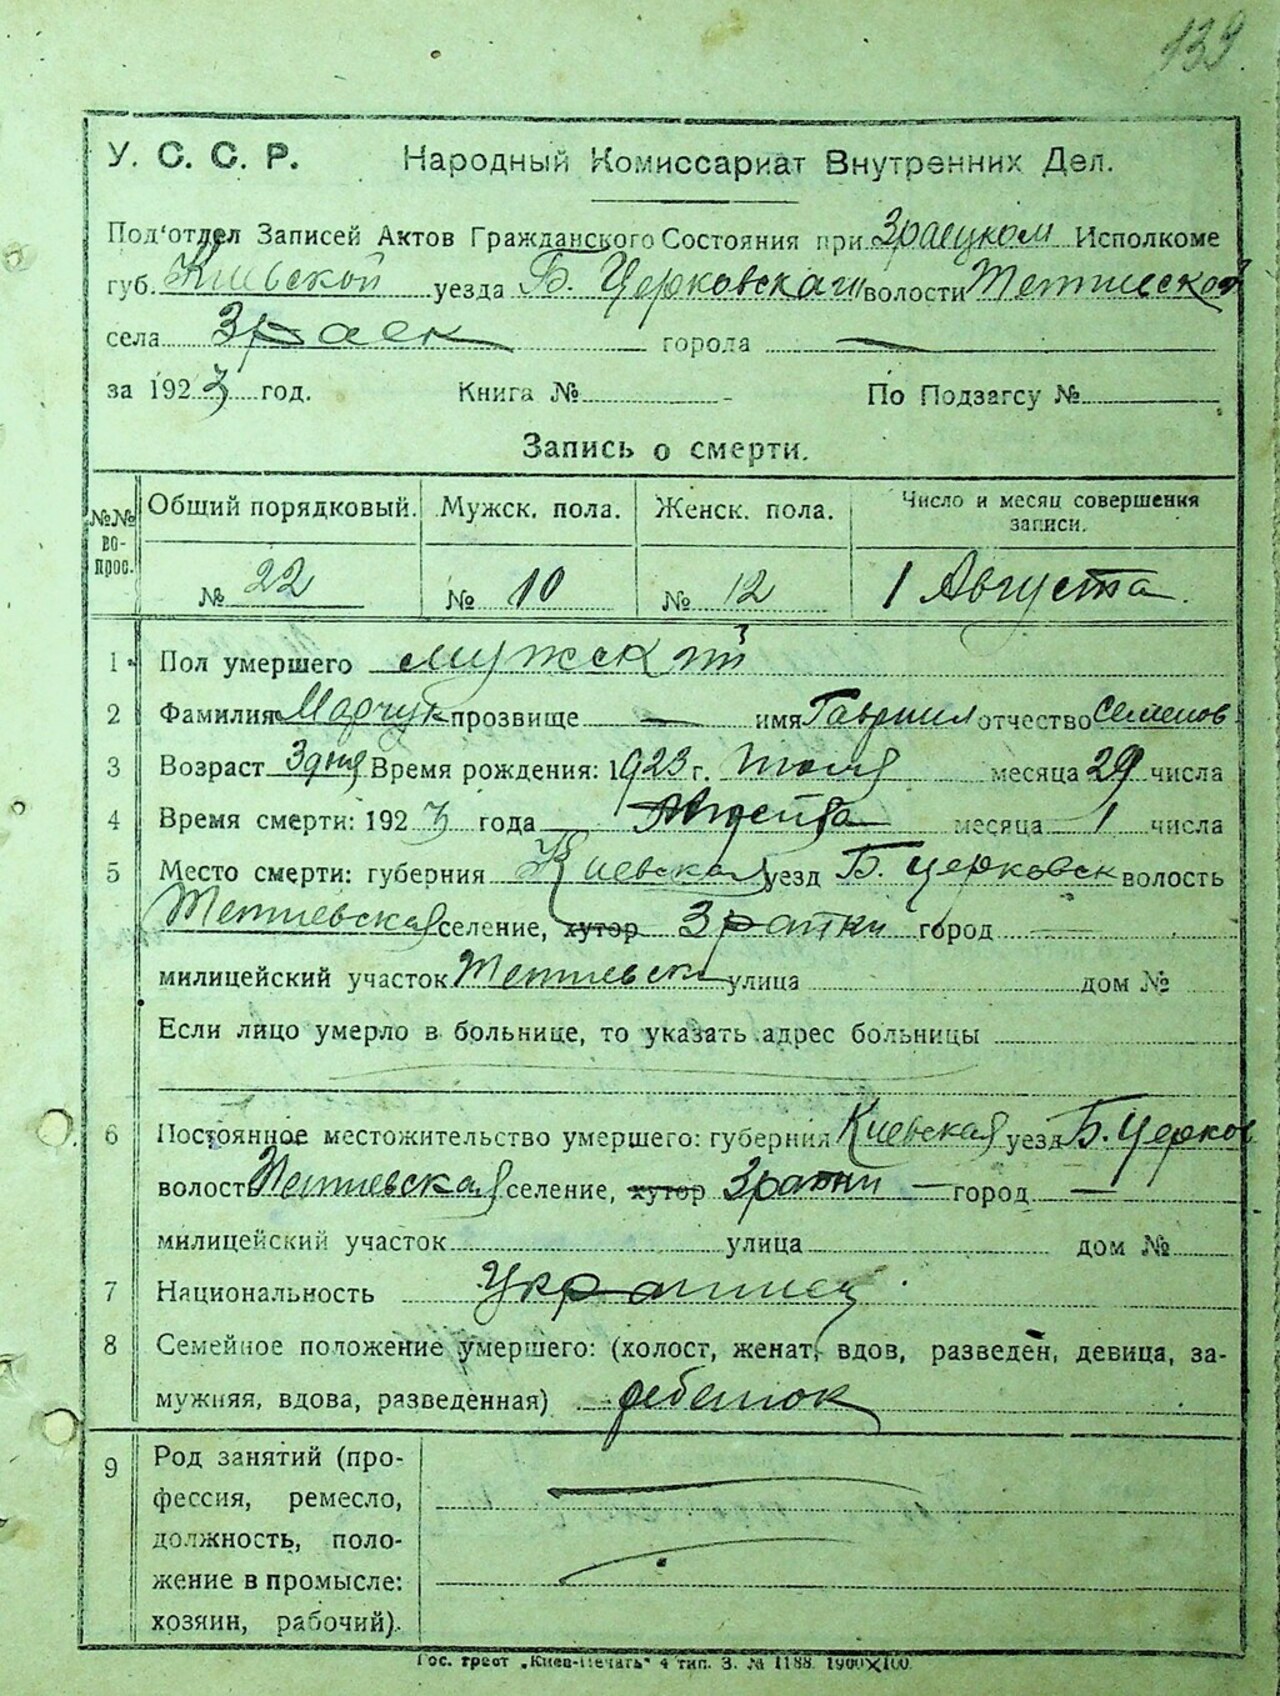 139.
У. С. С. Р. Народный Комиссариат Внутренних Дел.
Под'отдел Записей Актов Гражданского Состояния при Зраецком Исполкоме
губ. Киевской уезда Б. Церковская волости Тетиевской
села Зраек города —
за 1923 год. Книга № По Подзагсу №
Запись о смерти.
№№ вопрос. Общий порядковый. Мужск. пола. Женск. пола. Число и месяц совершения записи.
№ 22 № 10 № 12 1 Августа.
1 Пол умершего мужской
2 Фамилия Марчук прозвище — имя Гавриил отчество Семенов
3 Возраст 3 дня Время рождения: 1923 г. Июля месяца 29 числа
4 Время смерти: 1923 года Августа месяца 1 числа
5 Место смерти: губерния Киевская уезд Б. Церковск волость
Тетиевская селение, хутор Зратки город —
милицейский участок Тетиевск улица дом №
Если лицо умерло в больнице, то указать адрес больницы
6 Постоянное местожительство умершего: губерния Киевская уезд Б. Церков
волость Тетиевская селение, хутор город —
милицейский участок улица дом №
7 Национальность Украинец
8 Семейное положение умершего: (холост, женат, вдов, разведен, девица, за-
мужняя, вдова, разведенная) ребенок
9 Род занятий (про-
фессия, ремесло,
должность, поло-
жение в промысле:
хозяин, рабочий).
Гос. трест „Киев-Печать" 4 тип. З. № 1188. 1900X100.